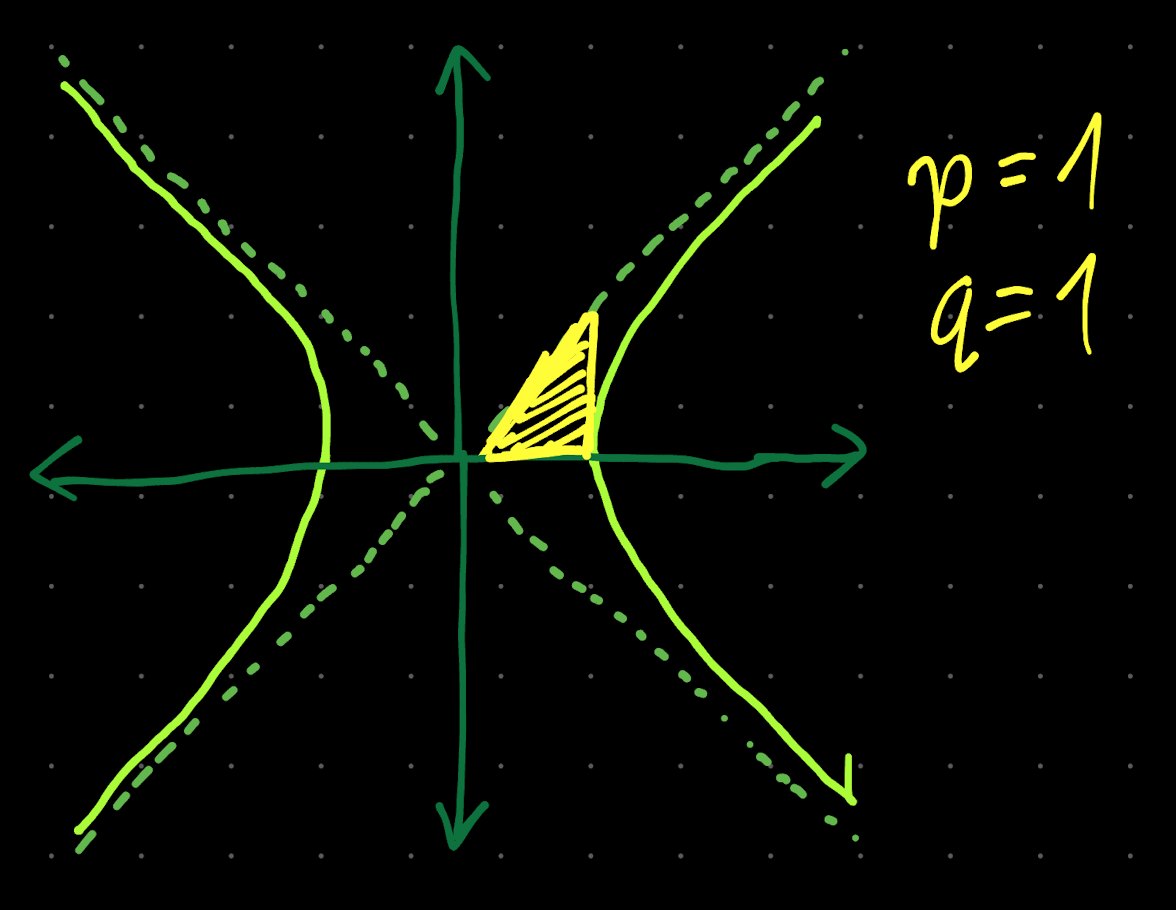 p = 1
q = 1